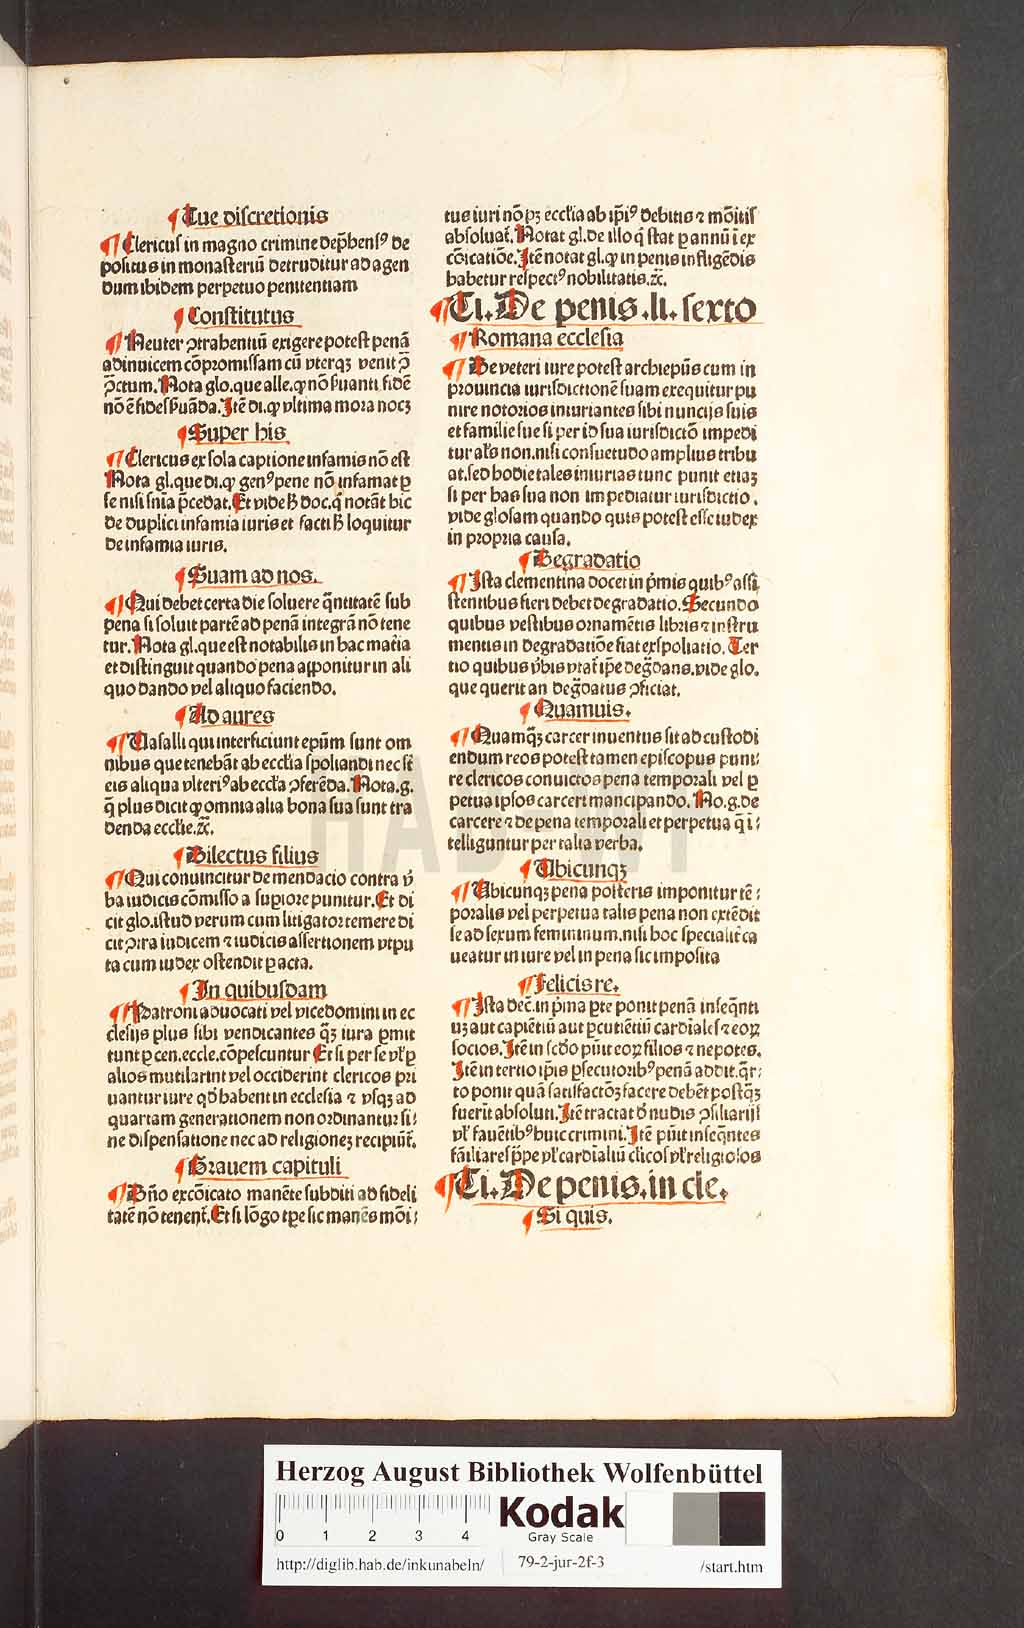 ¶ Tue discretionis
¶ Clericus in magno crimine dep̄hensꝰ de
positus in monasteriū detruditur ad agen
dum ibidem perpetuo penitentiam
¶ Constitutus
¶ Neuter ꝯtrahentiū exigere potest penā
adinuicem cōpromissam cū vterqꝫ venit ꝯ̄
p̄ctum. Nota glo. que alle. ꝙ nō ẜuanti fidē
nō ē fides ẜuāda. Itē di. ꝙ vltima mora nocꝫ
¶ Super his
¶ Clericus ex sola captione infamis nō est
Nota gl. que di. ꝙ genꝰ pene nō infamat ꝑ
se nisi sn̄ia p̄cedat. Et vide h̄ doc. q̇ notāt hic
de duplici infamia iuris et facti h̄ loquitur
de infamia iuris.
¶ Suam ad nos.
¶ Qui debet certa die soluere q̄ntitatē sub
pena si soluit partē ad penā integrā nō tene
tur. Nota gl. que est notabilis in hac mat̄ia
et distinguit quando pena apponitur in ali
quo dando vel aliquo faciendo.
¶ Ad aures
¶ Uasalli qui interficiunt ep̄um sunt om
nibus que tenebāt ab eccl̄ia spoliandi nec st̄
eis aliqua vlteriꝰ ab eccl̄ia ꝯferēda. Nota. g.
q̄ plus dicit ꝙ omnia alia bona sua sunt tra
denda eccl̄ie. ⁊c̄.
¶ Dilectus filius
¶ Qui conuincitur de mendacio contra v̄
ba iudicis cōmisso a suꝑiore punitur. Et di
cit glo. istud verum cum litigator temere di
cit ꝯtra iudicem ⁊ iudicis assertionem vtpu
ta cum iudex ostendit ꝑ acta.
¶ In quibusdam
¶ Patroni aduocati vel vicedomini in ec
clesijs plus sibi vendicantes q̄ꝫ iura ꝑmit
tunt ꝑ cen. eccle. cōpescuntur Et si per se vl̓ ꝑ
alios mutilarint vel occiderint clericos pri
uantur iure qd̓ habent in ecclesia ⁊ vsqꝫ ad
quartam generationem non ordinantur si⸗
ne dispensatione nec ad religioneꝫ recipiūt̄.
¶ Grauem capituli
¶ Dn̄o excōicato manēte subditi ad fideli
tatē nō tenent̄. Et si lōgo tꝑe sic manēs mōi⸗
tus iuri nō pꝫ eccl̄ia ab ip̄iꝰ debitis ⁊ mōitis
absoluat̄. Notat gl. de illo q̇ stat ꝑ annū ī ex
cōicatiōe. Itē notat gl. ꝙ in penis infligēdis
habetur respectꝰ nobilitatis. ⁊c̄.
¶ Ti. De penis. li. sexto
¶ Romana ecclesia
¶ De veteri iure potest archiep̄us cum in
prouincia iurisdictionē suam exequitur pu
nire notorios iniuriantes sibi nuncijs suis
et familie sue si per id sua iurisdictō impedi
tur al̄s non. nisi consuetudo amplius tribu
at. sed hodie tales iniurias tunc punit etiaꝫ
si per has sua non impediatur iurisdictio.
vide glosam quando quis potest esse iudex
in propria causa.
¶ Degradatio
¶ Ista clementina docet in p̓mis quibꝰ assi
stentibus fieri debet degradatio. Secundo
quibus vestibus ornamētis libris ⁊ instru
mentis in degradatiōe fiat exspoliatio. Ter
tio quibus v̄bis vtat̄ ip̄e deg̓dans. vide glo.
que querit an deg̓datus ꝯficiat.
¶ Quamuis.
¶ Quamq̄ꝫ carcer inuentus sit ad custodi
endum reos potest tamen episcopus puni⸗
re clericos conuictos pena temporali vel ꝑ
petua ipsos carceri mancipando. No. g. de
carcere ⁊ de pena temporali et perpetua q̄ ī⸗
telliguntur per talia verba.
¶ Ubicunqꝫ
¶ Ubicunqꝫ pena posteris imponitur tē⸗
poralis vel perpetua talis pena non extēdit
se ad sexum femininum. nisi hoc specialit̄ ca
ueatur in iure vel in pena sic imposita
¶ Felicis re.
¶ Ista dec̄. in p̓ma ꝑte ponit penā inseq̄nti
uꝫ aut capiētiū aut ꝑcutiētiū cardīales ⁊ eoꝝ
socios. Itē in scd̓o pūit eoꝝ filios ⁊ nepotes.
Itē in tertio ip̄is ꝑsecutoribꝰ penā addit. q̄r⸗
to ponit quā satisfactōꝫ facere debēt postq̄ꝫ
fuerīt absoluti. Itē tractat d̓ nudis ꝯsiliarijs
vl̓ fauētibꝰ huic crimini. Itē pūit inseq̄ntes
fāiliares p̄pe vl̓ cardīaliū cl̓icos vl̓ religiosos
¶ Ti. De penis. in cle.
¶ Si quis.
HAB-Wf
Herzog August Bibliothek Wolfenbüttel
0 1 2 3 4
Kodak
Gray Scale
http://diglib.hab.de/inkunabeln/ 79-2-jur-2f-3 /start.htm